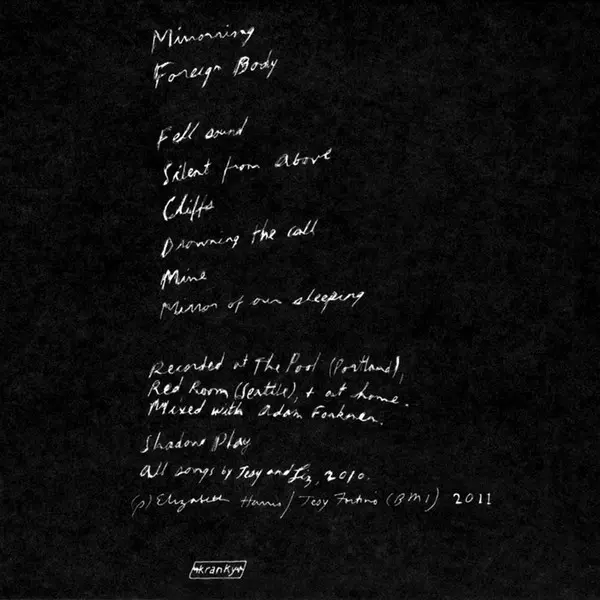 Mirrorring
Foreign Body
Fell sound
Silent from above
Cliffs
Drowning the call
Mine
Mirror of our sleeping
Recorded at The Pool (Portland),
Red Room (Seattle), + at home.
Mixed with Adam Forkner.
Shadow Play
All songs by Jesy and Liz, 2010.
(p) Elizabeth Harris / Jesy Fortino (BMI) 2011
kranky